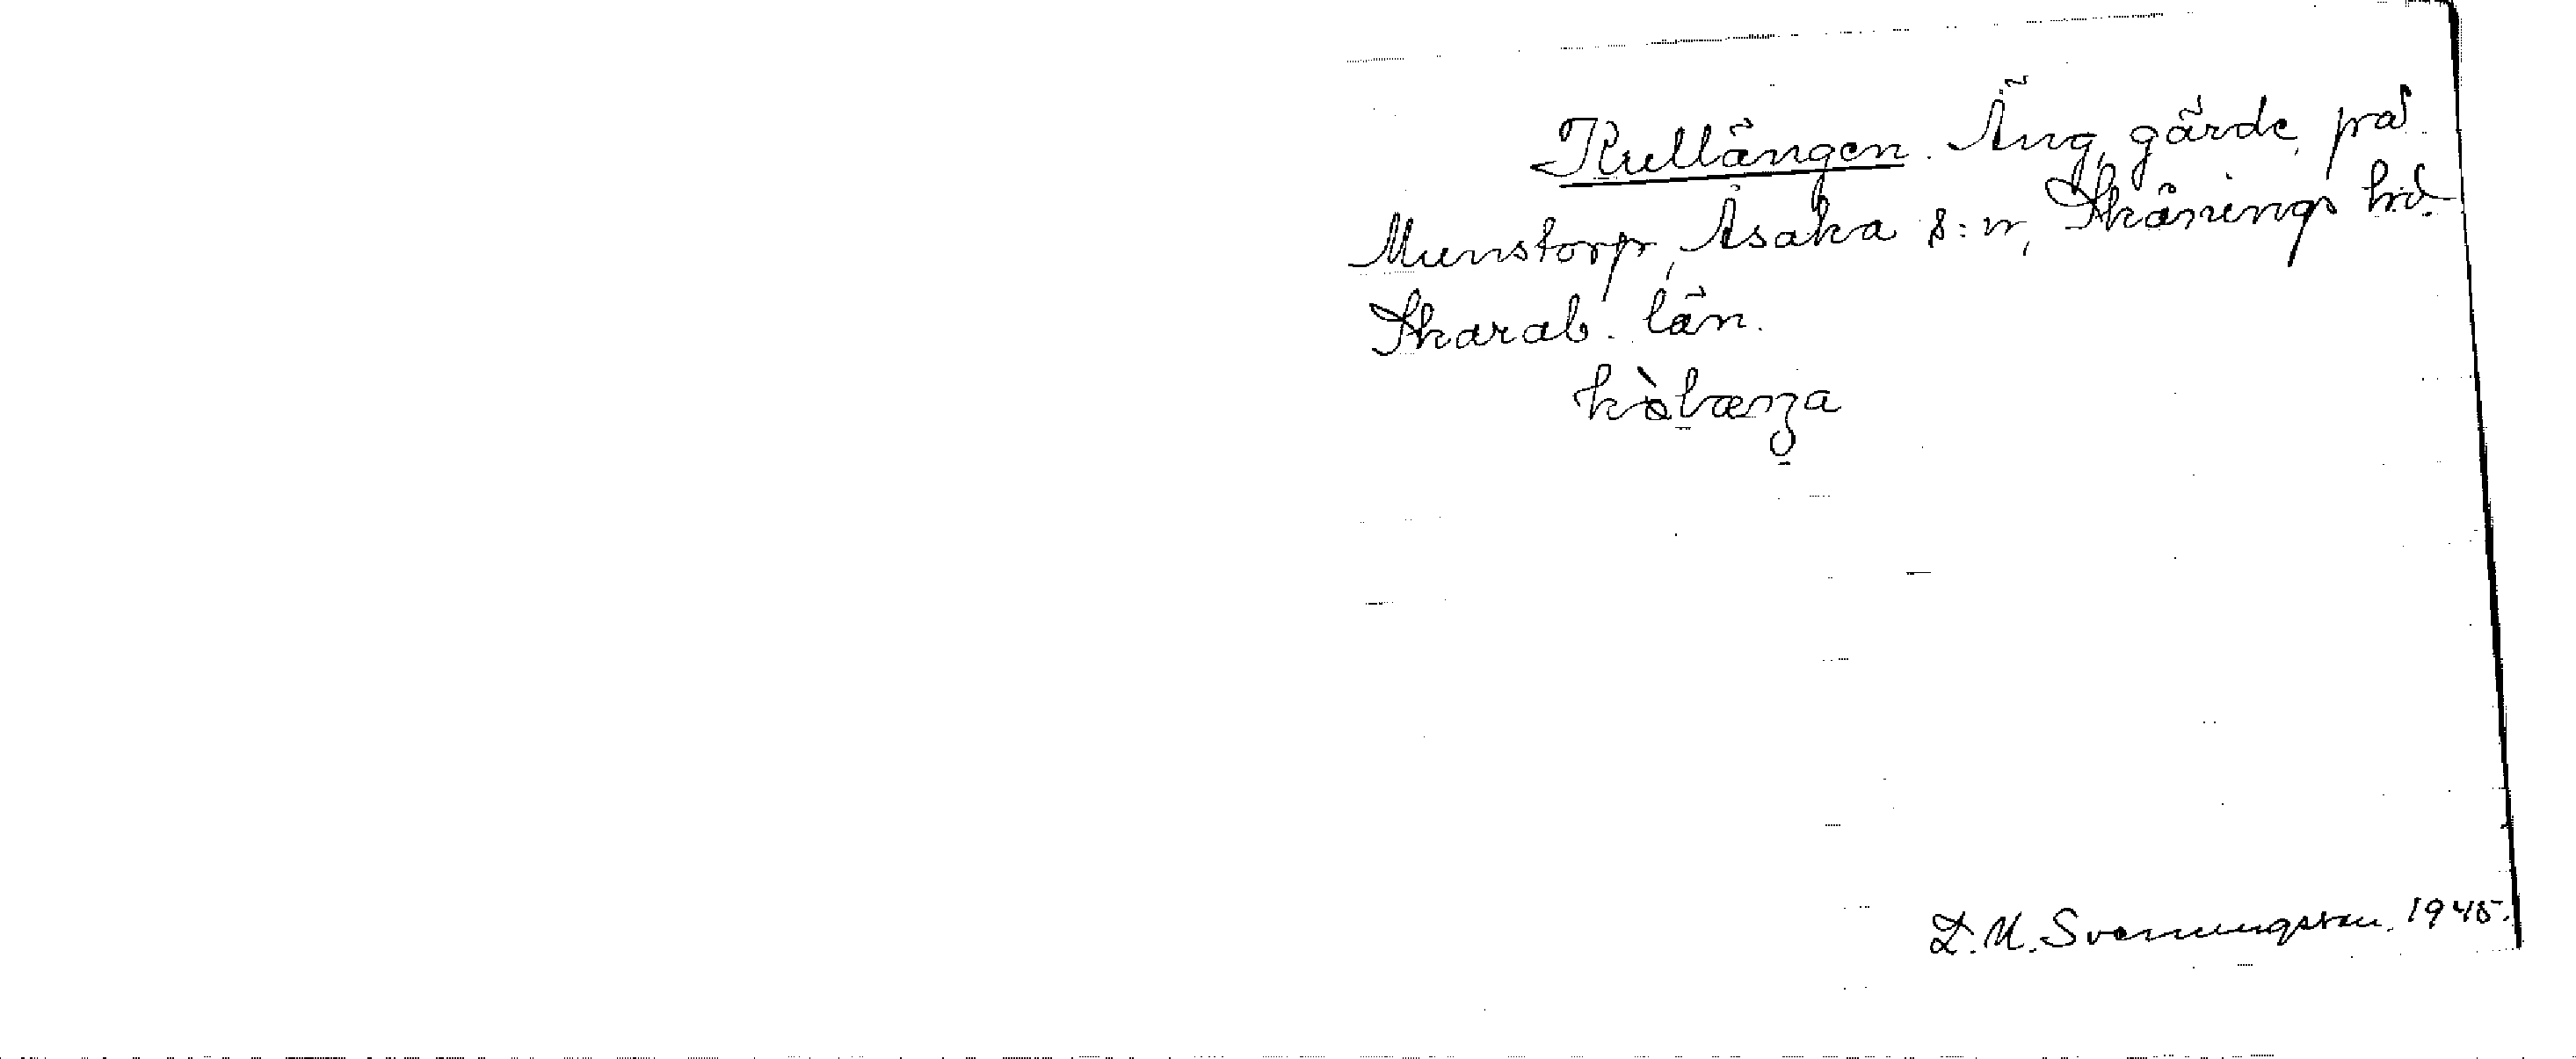 Kullängen. Äng, gärde, på
Munstorp, Åsaka s:n, Skånings hd
Skarab. län.
D.M. Svenningsson. 1945.